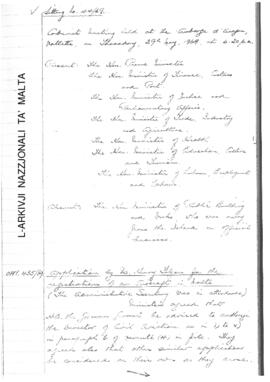 Sitting No. 44/69.
Cabinet meeting held at the Auberge d'Aragon,
Valletta, on Thursday, 29th May, 1969, at 4.20 p.m.
Present: The Hon. Prime Minister
The Hon. Minister of Finance, Customs
and Port.
The Hon. Minister of Justice and
Parliamentary Affairs.
The Hon. Minister of Trade, Industry
and Agriculture.
The Hon. Minister of Health
The Hon. Minister of Education, Culture
and Tourism
The Hon. Minister of Labour, Employment
and Welfare.
Absent: The Hon. Minister of Public Building
and Works who was away
from the Island on official
business.
L-ARKIVJI NAZZJONALI TA' MALTA
Application by Mr. for the
registration of an Aircraft in Malta
(The Administrative Secretary was in attendance)
Ministers agreed that
the Governor General be advised to authorise
the Director of Civil Aviation as in
in paragraph 6 of minute in file. They
agreed also that other similar applications
be considered on their own as they arose.